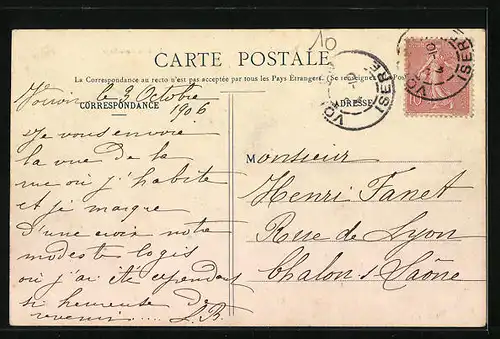 10
CARTE POSTALE
La Correspondance au recto n'est pas acceptée par tous les Pays Étrangers. (Se renseigner
CORRESPONDANCE
ADRESSE
Voiron le 3 Octobre
1906
Je vous envoie
la vue de la
rue où j'habite
et je marque
d'une croix notre
modeste logis
où j'ai été cependant
si heureuse de
revenir..... L.B.
Monsieur
Henri Fanet
Rue de Lyon
Chalon s/ Saône
ISERE
ISERE
10